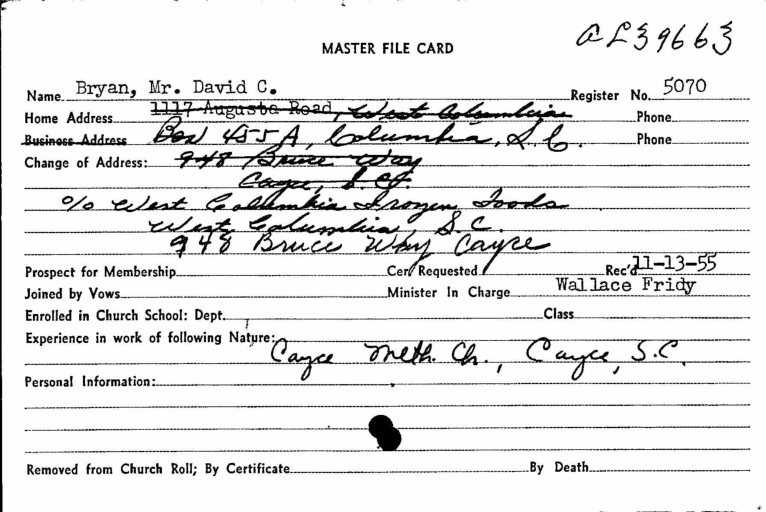 AL39663
MASTER FILE CARD
Name Bryan, Mr. David C. Register No. 5070
Home Address 1117 Augusta Road, West Columbia Phone
Business Address Box 455A, Columbia, S.C. Phone
Change of Address: 948 Bruce Way
Cayce, S.C.
% West Columbia Frozen Foods
West Columbia, S.C.
948 Bruce Way Cayce
Prospect for Membership Cer/Requested Rec'd 11-13-55
Joined by Vows Minister In Charge Wallace Fridy
Enrolled in Church School: Dept. Class
Experience in work of following Nature:
Cayce Meth. Ch., Cayce, S.C.
Personal Information:
Removed from Church Roll; By Certificate By Death